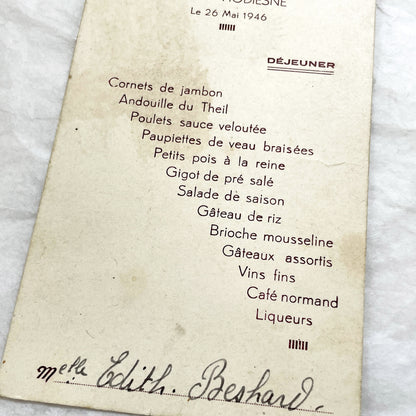 Le 26 Mai 1946
DÉJEUNER
Cornets de jambon
Andouille du Theil
Poulets sauce veloutée
Paupiettes de veau braisées
Petits pois à la reine
Gigot de pré salé
Salade de saison
Gâteau de riz
Brioche mousseline
Gâteaux assortis
Vins fins
Café normand
Liqueurs
Melle Edith. Beshard.